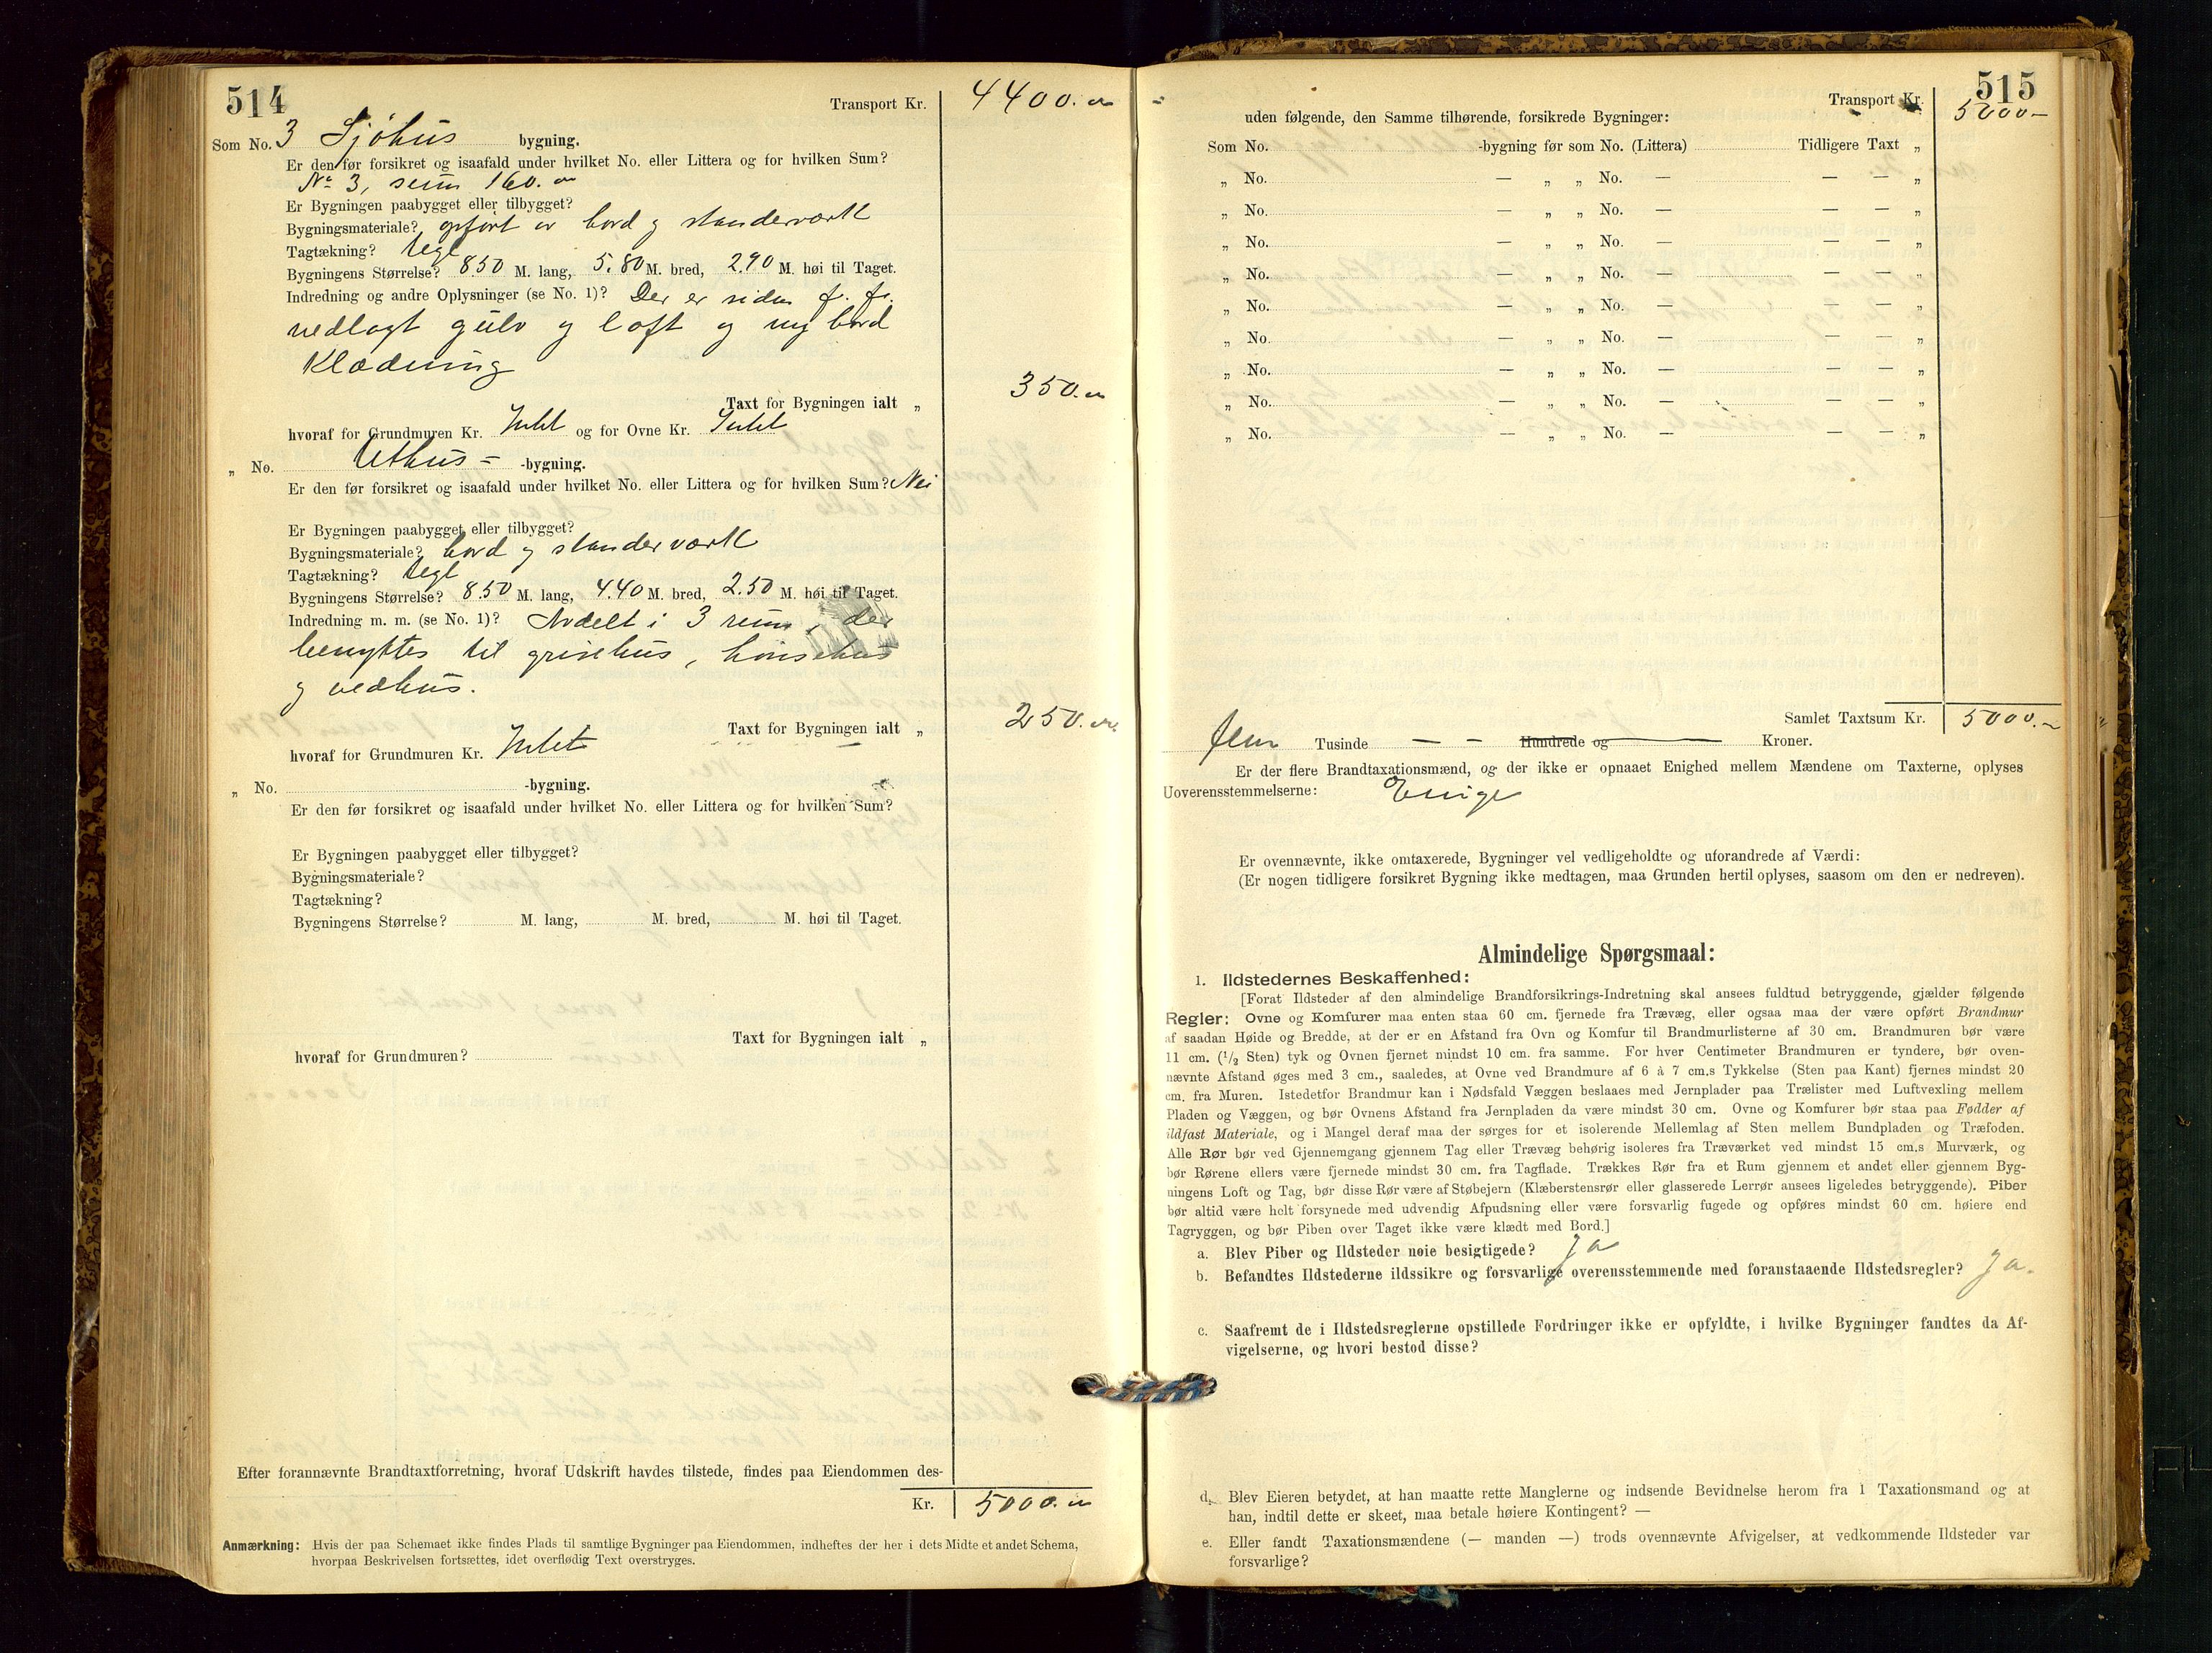 514
Transport Kr. 4400.
Som No. 3 Sjöhus bygning.
Er den før forsikret og isaafald under hvilket No. eller Littera og for hvilken Sum?
No 3, sum 160.
Er Bygningen paabygget eller tilbygget?
Bygningsmateriale? opført av bord g standerværk
Tagtækning? tegl
Bygningens Størrelse? 8.50 M. lang, 5.80 M. bred, 2.90 M. høi til Taget.
Indredning og andre Oplysninger (se No. 1)? Der er siden f. fr.
nedlagt gulv g loft g ny bord
Klædning
350.
Taxt for Bygningen ialt „
hvoraf for Grundmuren Kr. Intet og for Ovne Kr. Intet
„ No. Uthus = -bygning.
Er den før forsikret og isaafald under hvilket No. eller Littera og for hvilken Sum? Nei
Er Bygningen paabygget eller tilbygget?
Bygningsmateriale? bord g standerværk
Tagtækning? tegl
Bygningens Størrelse? 8.50 M. lang, 4.40 M. bred, 2.50 M. høi til Taget.
Indredning m. m. (se No. 1)? Avdelt i 3 rum, der
benyttes til grisehus, hønsehus
g vedhus.
Taxt for Bygningen ialt „ 250.
hvoraf for Grundmuren Kr. Intet
„ No. -bygning.
Er den før forsikret og isaafald under hvilket No. eller Littera og for hvilken Sum?
Er Bygningen paabygget eller tilbygget?
Bygningsmateriale?
Tagtækning?
Bygningens Størrelse? M. lang, M. bred, M. høi til Taget.
Taxt for Bygningen ialt „
hvoraf for Grundmuren?
Efter forannævnte Brandtaxtforretning, hvoraf Udskrift havdes tilstede, findes paa Eiendommen des-
Kr. 5000.
Anmærkning: Hvis der paa Schemaet ikke findes Plads til samtlige Bygninger paa Eiendommen, indheftes der her i dets Midte et andet Schema,
hvorpaa Beskrivelsen fortsættes, idet overflødig Text overstryges.
515
Transport Kr. 5000–
uden følgende, den Samme tilhørende, forsikrede Bygninger:
Som No. -bygning før som No. (Littera) Tidligere Taxt „
„ No. — „ „ No. — — — „
„ No. — „ „ No. — — — „
„ No. — „ „ No. — — — „
„ No. — „ „ No. — — — „
„ No. — „ „ No. — — — „
„ No. — „ „ No. — — — „
„ No. — „ „ No. — — — „
„ No. — „ „ No. — — — „
„ No. — „ „ No. — — — „
Samlet Taxtsum Kr. 5000.–
Fem Tusinde — — Hundrede og — Kroner.
Er der flere Brandtaxationsmænd, og der ikke er opnaaet Enighed mellem Mændene om Taxterne, oplyses
Uoverensstemmelserne: Enige
Er ovennævnte, ikke omtaxerede, Bygninger vel vedligeholdte og uforandrede af Værdi:
(Er nogen tidligere forsikret Bygning ikke medtagen, maa Grunden hertil oplyses, saasom om den er nedreven).
Almindelige Spørgsmaal:
1. Ildstedernes Beskaffenhed:
[Forat Ildsteder af den almindelige Brandforsikrings-Indretning skal ansees fuldtud betryggende, gjælder følgende
Regler: Ovne og Komfurer maa enten staa 60 cm. fjernede fra Trævæg, eller ogsaa maa der være opført Brandmur
af saadan Høide og Bredde, at der er en Afstand fra Ovn og Komfur til Brandmurlisterne af 30 cm. Brandmuren bør være
11 cm. (1/2 Sten) tyk og Ovnen fjernet mindst 10 cm. fra samme. For hver Centimeter Brandmuren er tyndere, bør oven-
nævnte Afstand øges med 3 cm., saaledes, at Ovne ved Brandmure af 6 à 7 cm.s Tykkelse (Sten paa Kant) fjernes mindst 20
cm. fra Muren. Istedetfor Brandmur kan i Nødsfald Væggen beslaaes med Jernplader paa Trælister med Luftvexling mellem
Pladen og Væggen, og bør Ovnens Afstand fra Jernpladen da være mindst 30 cm. Ovne og Komfurer bør staa paa Fødder af
ildfast Materiale, og i Mangel deraf maa der sørges for et isolerende Mellemlag af Sten mellem Bundpladen og Træfoden.
Alle Rør bør ved Gjennemgang gjennem Tag eller Trævæg behørig isoleres fra Træværket ved mindst 15 cm.s Murværk, og
bør Rørene ellers være fjernede mindst 30 cm. fra Tagflade. Trækkes Rør fra et Rum gjennem et andet eller gjennem Byg-
ningens Loft og Tag, bør disse Rør være af Støbejern (Klæberstensrør eller glasserede Lerrør ansees ligeledes betryggende). Piber
bør altid være helt forsynede med udvendig Afpudsning eller være forsvarlig fugede og opføres mindst 60 cm. høiere end
Tagryggen, og bør Piben over Taget ikke være klædt med Bord.]
a. Blev Piber og Ildsteder nøie besigtigede? Ja
b. Befandtes Ildstederne ildssikre og forsvarlige overensstemmende med foranstaaende Ildstedsregler? Ja.
c. Saafremt de i Ildstedsreglerne opstillede Fordringer ikke er opfyldte, i hvilke Bygninger fandtes da Af-
vigelserne, og hvori bestod disse?
d. Blev Eieren betydet, at han maatte rette Manglerne og indsende Bevidnelse herom fra 1 Taxationsmand og at
han, indtil dette er skeet, maa betale høiere Kontingent? —
e. Eller fandt Taxationsmændene (— manden —) trods ovennævnte Afvigelser, at vedkommende Ildsteder var
forsvarlige?